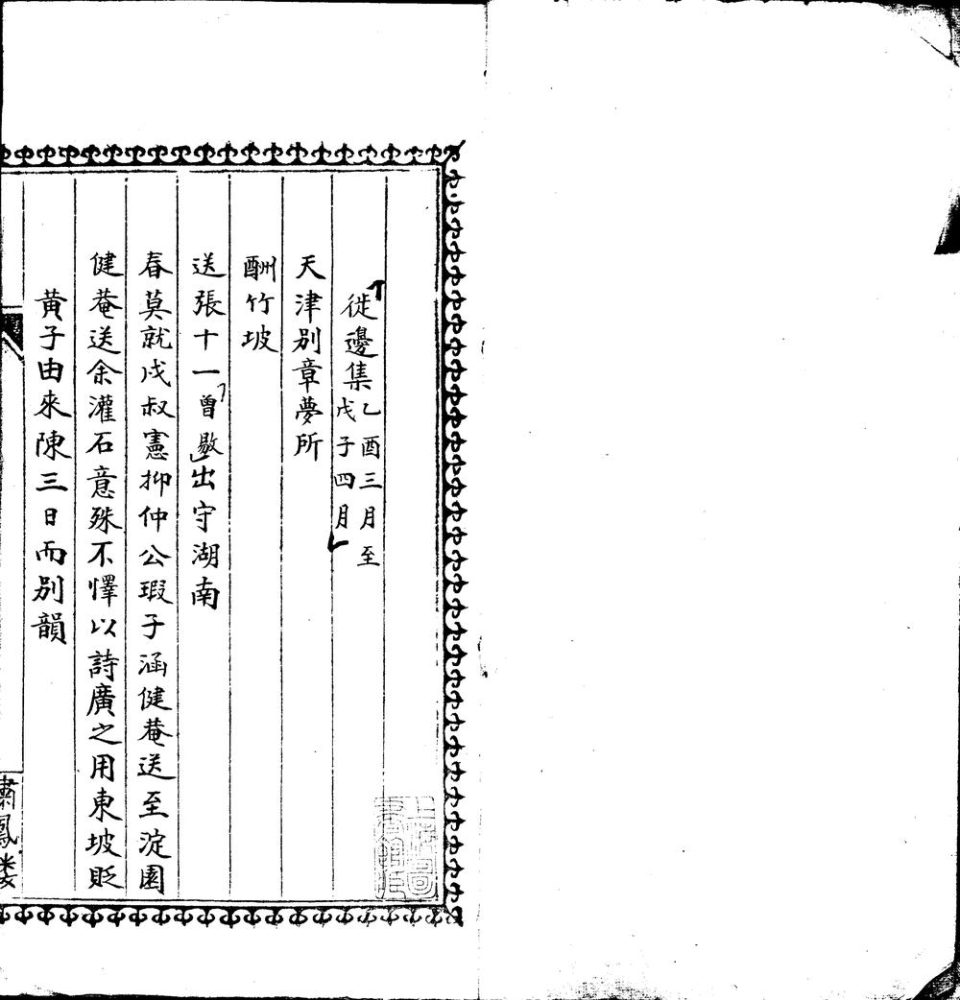 從邊集乙酉三月至戊子四月
天津別章夢所
酬竹坡
送張十一曾敭出守湖南
春莫就戍叔憲抑仲公瑕子涵健菴送至淀園
健菴送余灌石意殊不懌以詩廣之用東坡貶
黃子由來陳三日而別韻
嘯鳳楼
上海圖書館藏